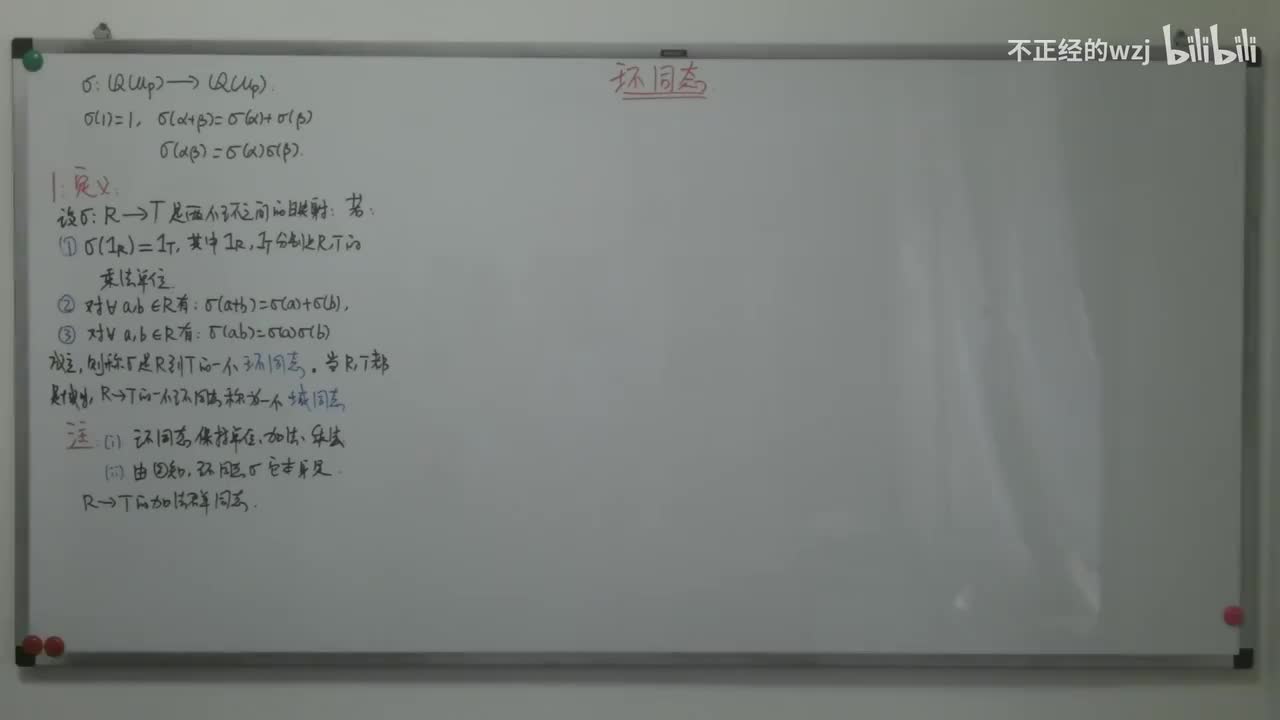 不正经的wzj bilibili
环同态
σ: Q(μp) → Q(μp).
σ(1)=1, σ(α+β)=σ(α)+σ(β)
σ(αβ)=σ(α)σ(β).
1: 定义:
设σ: R→T是两个环之间的映射; 若:
① σ(1R)=1T, 其中1R, 1T分别是R,T的
乘法单位.
② 对∀ a,b∈R有: σ(a+b)=σ(a)+σ(b),
③ 对∀ a,b∈R有: σ(ab)=σ(a)σ(b)
成立, 则称σ是R到T的一个环同态. 当R,T都
是域时, R→T的一个环同态称为一个域同态
注 (i) 环同态保持单位、加法、乘法
(ii) 由②知, 环同态σ它本身是
R→T的加法群同态.